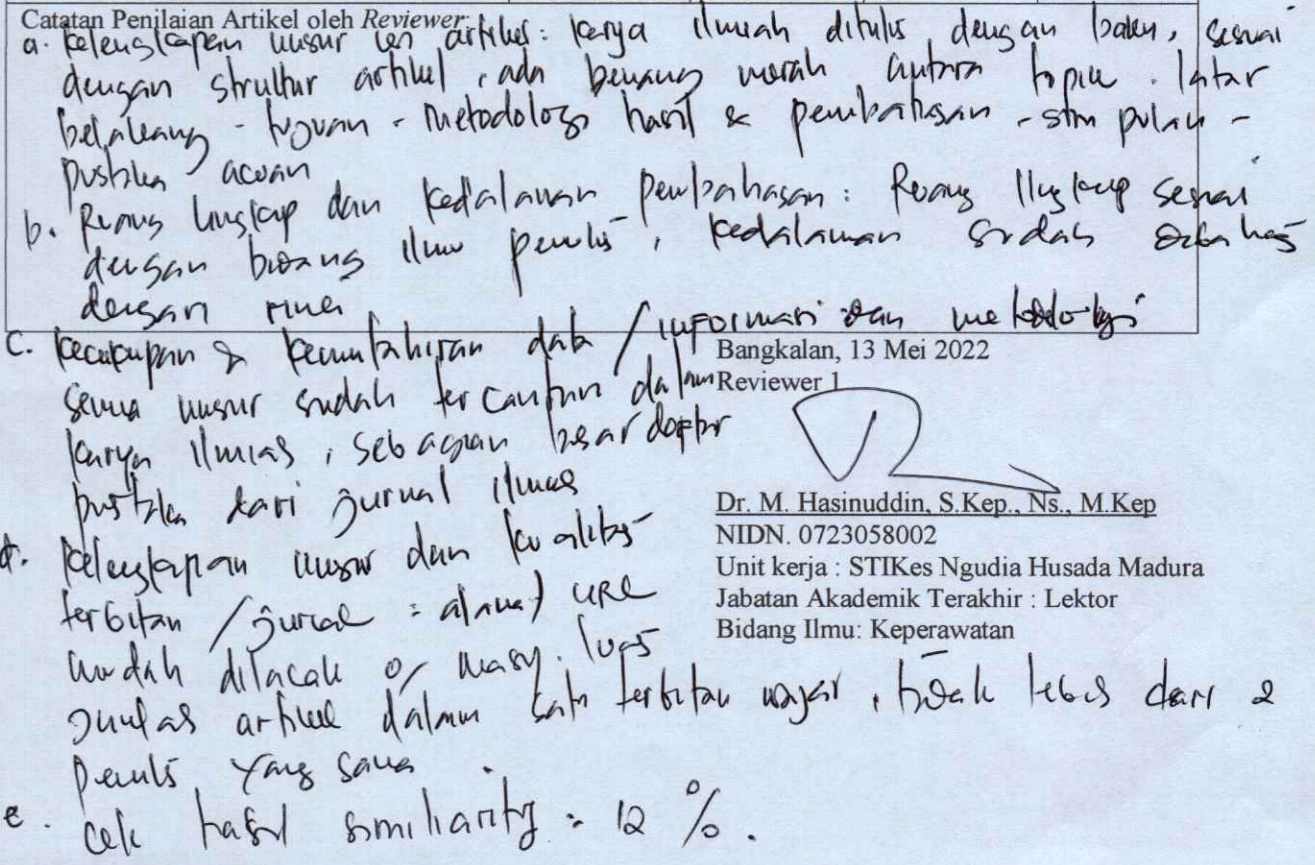 Catatan Penilaian Artikel oleh Reviewer:
a. kelengkapan unsur isi artikel: karya ilmiah ditulis dengan baku, sesuai
dengan struktur artikel, ada benang merah antara topik. latar
belakang - tujuan - metodologi hasil & pembahasan - simpulan -
pustaka acuan
b. Ruang lingkup dan kedalaman pembahasan: Ruang lingkup sesuai
dengan bidang ilmu penulis, kedalaman sudah dibahas
dengan rinci
c. kecukupan & kemutahiran data / informasi dan metodologi
semua unsur sudah tercantum dalam
karya ilmiah, sebagian besar daftar
pustaka dari jurnal ilmiah
d. kelengkapan unsur dan kualitas
terbitan / jurnal : alamat URL
mudah dilacak o/ masy. luas
jumlah artikel dalam satu terbitan wajar, tidak lebih dari 2
penulis yang sama.
e. cek hasil similarity : 12 %.
Bangkalan, 13 Mei 2022
Reviewer 1
Dr. M. Hasinuddin, S.Kep., Ns., M.Kep
NIDN. 0723058002
Unit kerja : STIKes Ngudia Husada Madura
Jabatan Akademik Terakhir : Lektor
Bidang Ilmu: Keperawatan